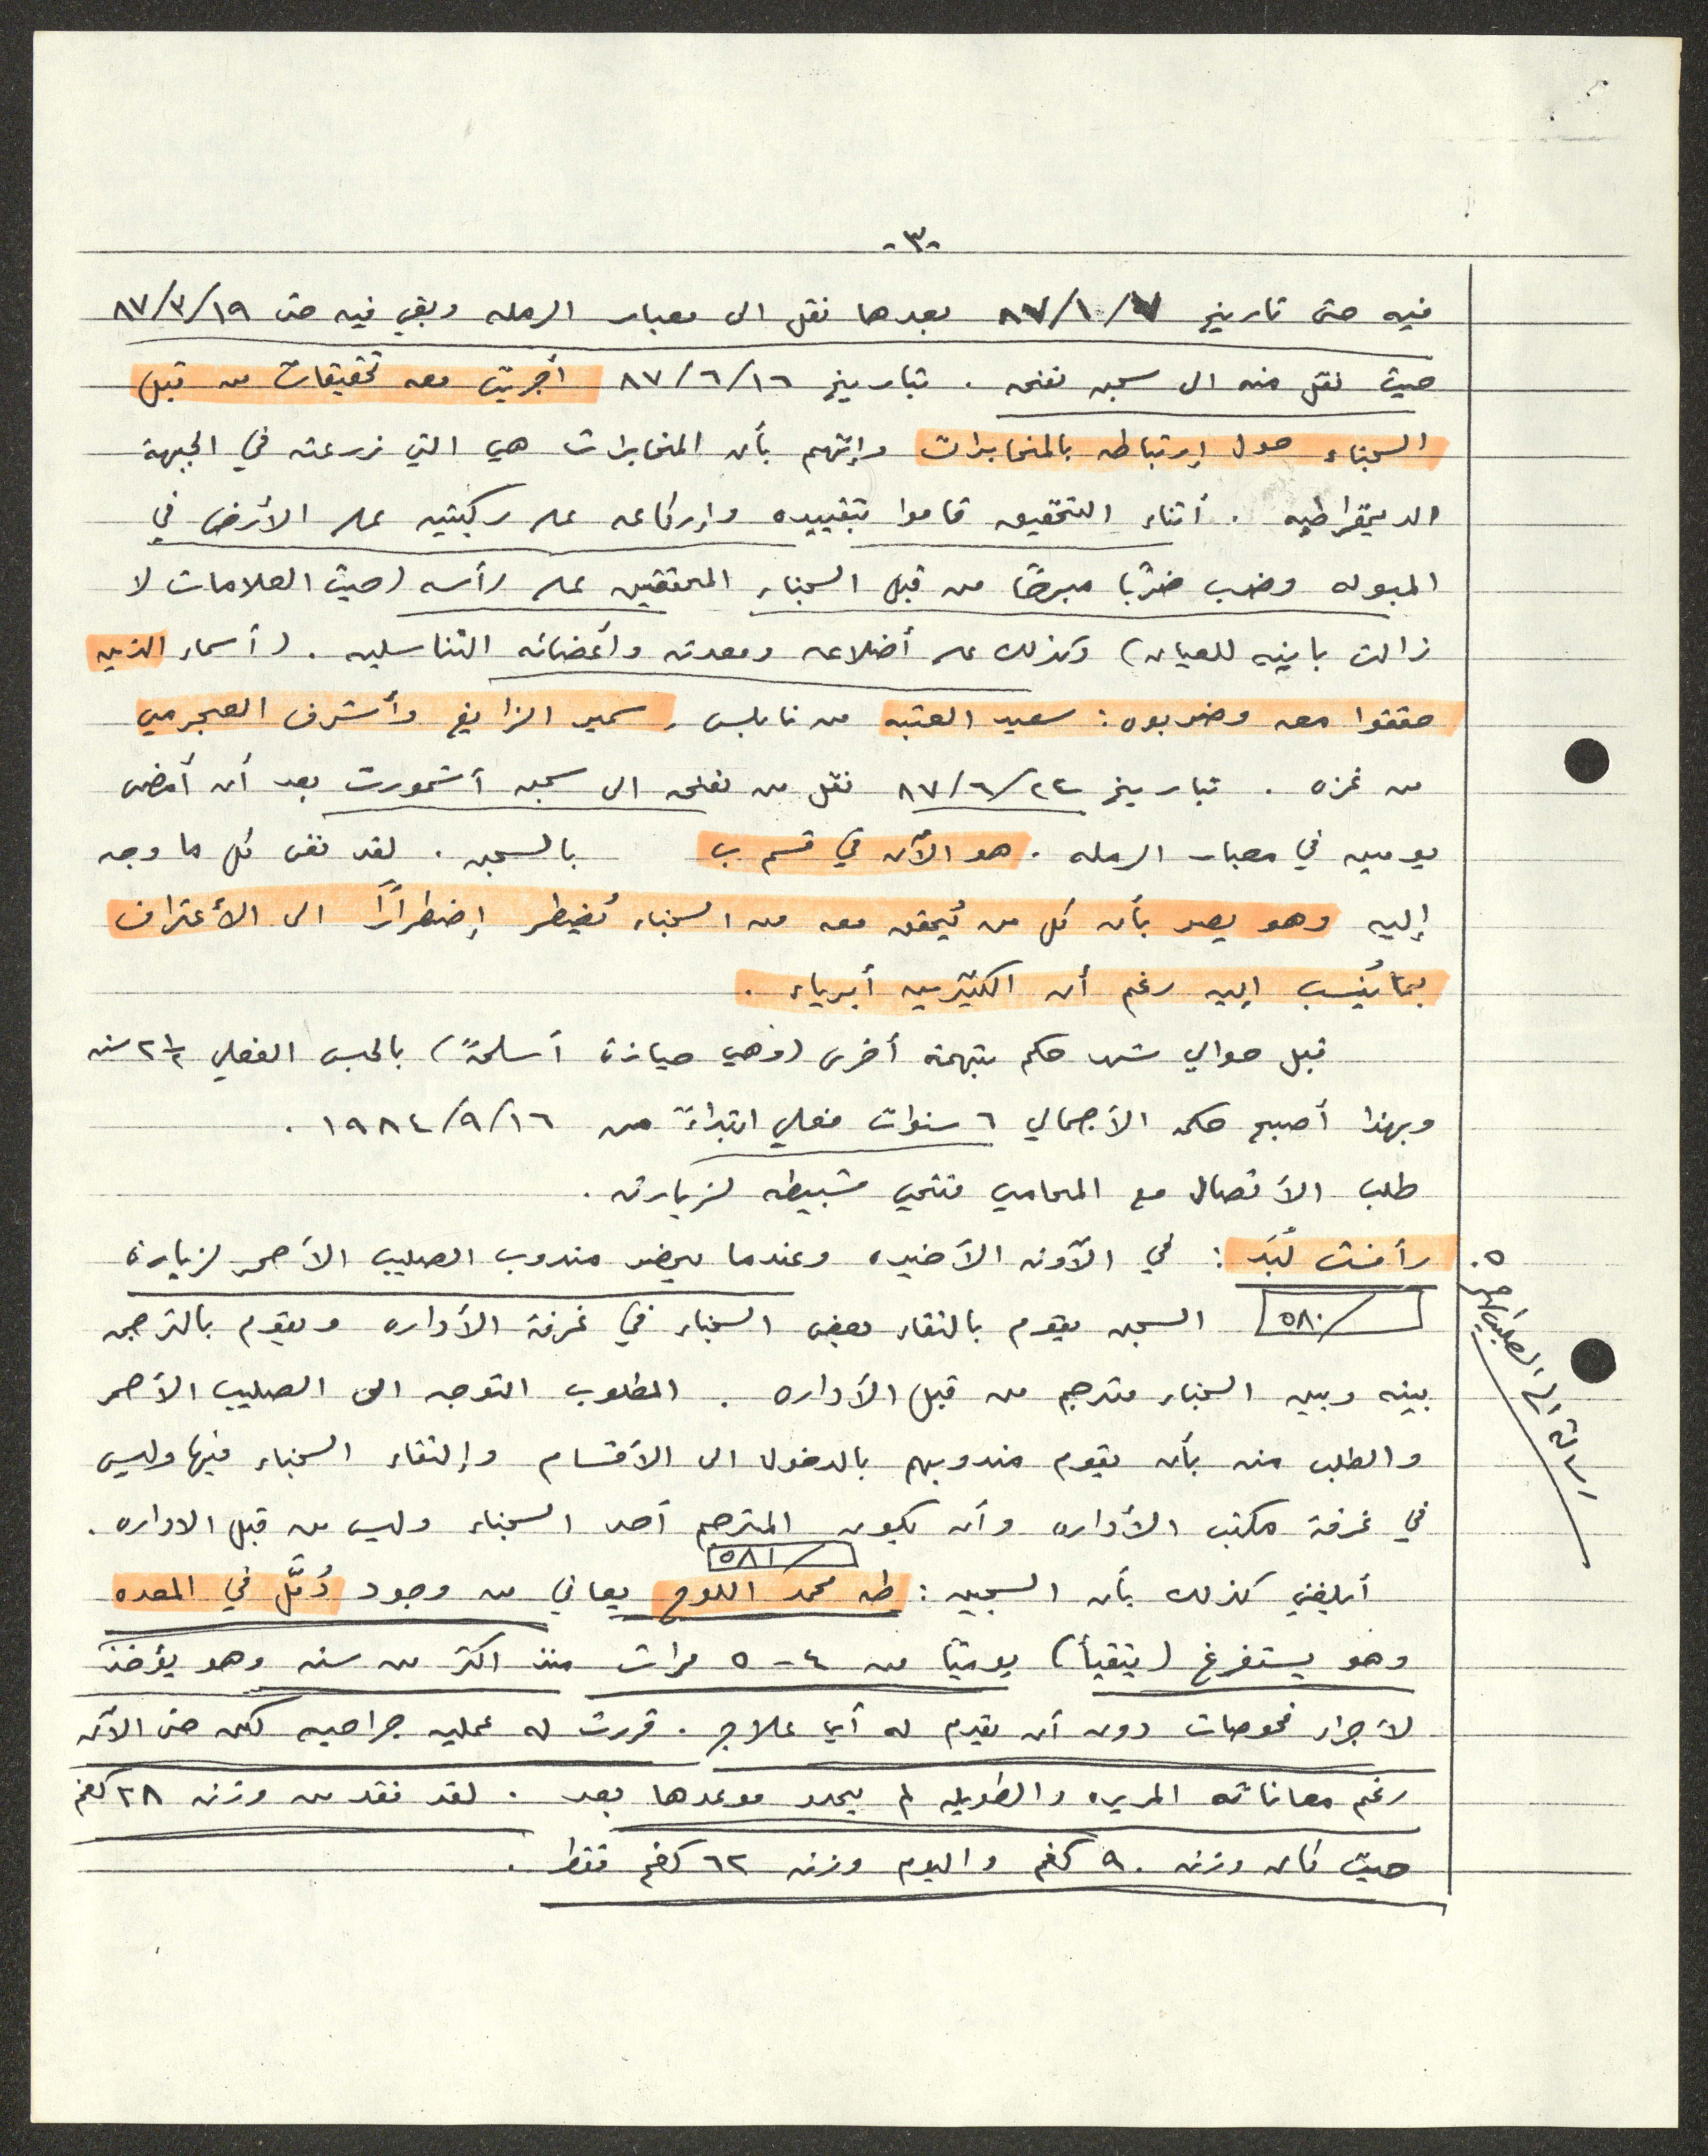 -٣-
فيه حتى تاريخ ٨٧/١/٧ بعدها نقل الى معبار الرمله وبقي فيه حتى ٨٧/٣/١٩
حيث نقل منه الى سجن نفحه . بتاريخ ٨٧/٦/١٦ أجريت معه تحقيقات من قبل
السجناء حول إرتباطه بالمخابرات وإتهم بأن المخابرات هي التي زرعته في الجبهة
الديمقراطيه . أثناء التحقيق قاموا بتقييده وإركاعه على ركبتيه على الأرض في
المبوله وضرب ضربًا مبرحًا من قبل السجناء المحققين على رأسه (حيث العلامات لا
زالت باينه للعيان) وكذلك على أضلاعه ومعدته وأعضائه التناسليه . (أسماء الذين
حققوا معه وضربوه : سعيد العتبه من نابلس , سمير الزايغ وأشرف العجرمي
من غزه . بتاريخ ٨٧/٦/٢٢ نقل من نفحه الى سجن أشمورت بعد أن أمضى
يومين في معبار الرمله . هو الآن في قسم ب بالسجن . لقد نفى كل ما وجه
إليه وهو يصر بأن كل من يُحقق معه من السجناء يُضطر إضطرارًا الى الأعتراف
بما يُنسب إليه رغم أن الكثيرين أبرياء .
قبل حوالي شهر حكم بتهمة أخرى (وهي حيازة أسلحةً) بالحبس الفعلي ٢ ١/٢ سنه
وبهذا أصبح حكمه الأجمالي ٦ سنوات فعلي ابتداءً من ١٩٨٤/٩/١٦ .
طلب الأتصال مع المحامي فتحي شبيطه لزيارته .
٥. رأفت لُبَد : في الآونه الأخيره وعندما يحضر مندوب الصليب الأحمر لزيارة
٥٨٠/ السجن يقوم بالتقاء بعض السجناء في غرفة الأداره ويقوم بالترجمه
بينه وبين السجناء مترجم من قبل الأداره . المطلوب التوجه الى الصليب الأحمر
والطلب منه بأن يقوم مندوبهم بالدخول الى الأقسام وإلتقاء السجناء فيها وليس
في غرفة مكتب الأداره وأن يكون المترجم أحد السجناء وليس من قبل الاداره .
٥٨١/
أبلغني كذلك بأن السجين : طه محمد اللوح يعاني من وجود دُمَّل في المعده
وهو يستفرغ (يتقيأ) يوميًا من ٤-٥ مرات منذ اكثر من سنه وهو يؤخذ
لأجراء فحوصات دون أن يقدم له أي علاج . قررت له عمليه جراحيه لكن حتى الآن
رغم معاناته المريره والطويله لم يحدد موعدها بعد . لقد فقد من وزنه ٢٨ كغم
حيث كان وزنه ٩٠ كغم واليوم وزنه ٦٢ كغم فقط .